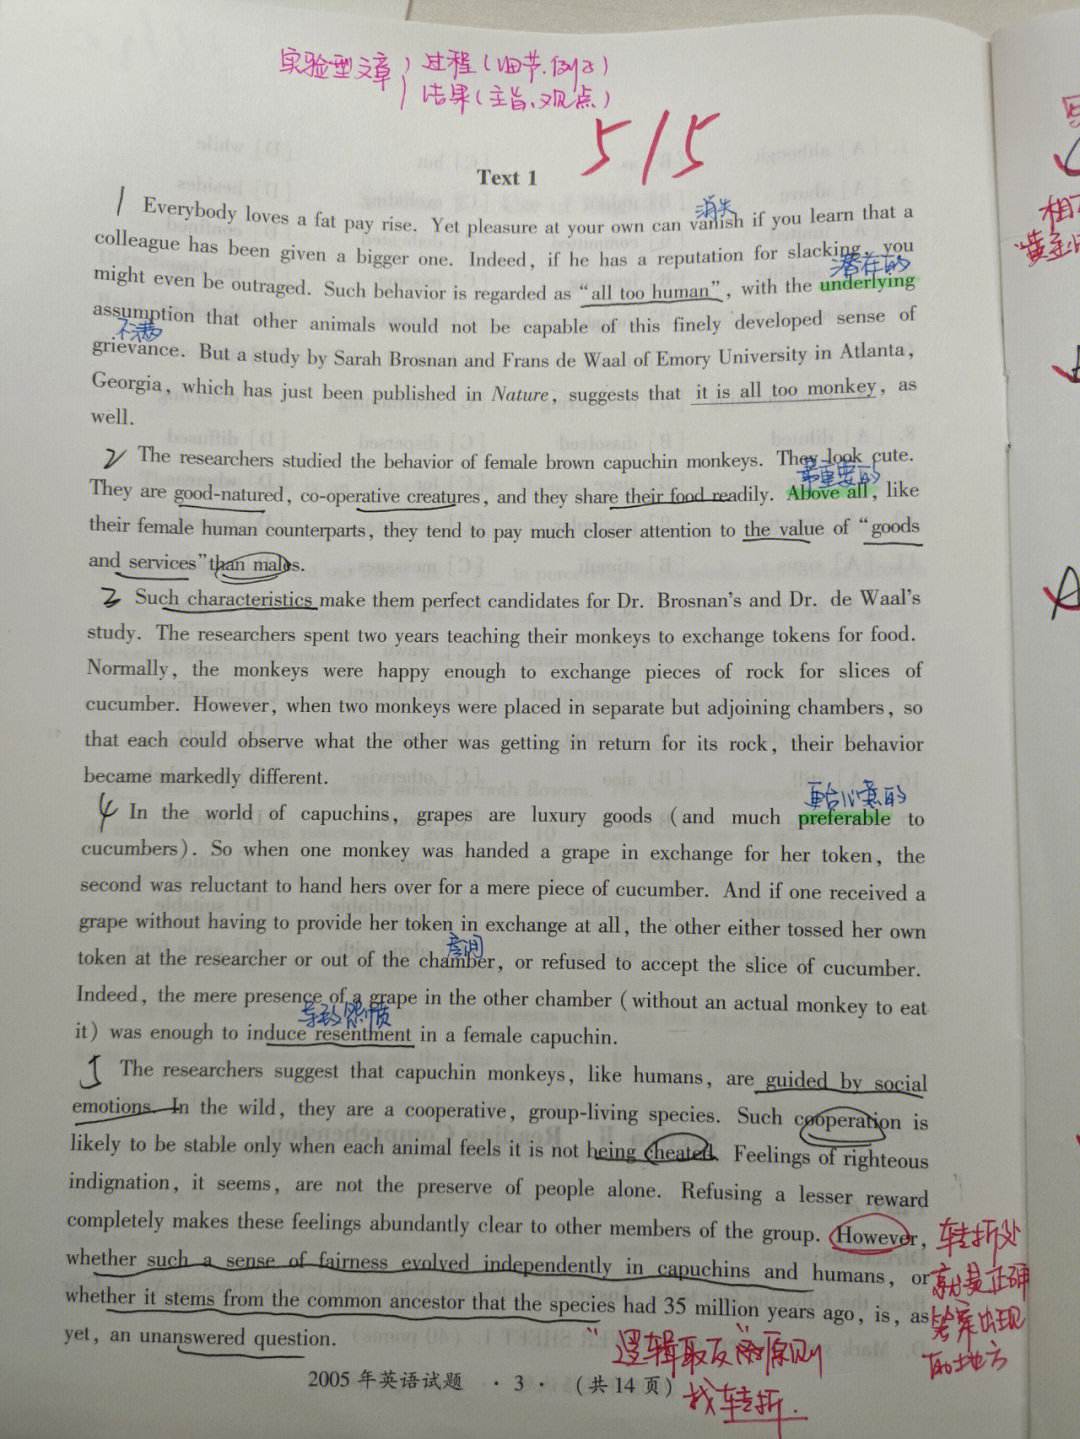 实验型文章 过程(细节、例子)
结果(主旨、观点)
5/5
Text 1
消失
1 Everybody loves a fat pay rise. Yet pleasure at your own can vanish if you learn that a
colleague has been given a bigger one. Indeed, if he has a reputation for slacking, you
潜在的
might even be outraged. Such behavior is regarded as “all too human”, with the underlying
assumption that other animals would not be capable of this finely developed sense of
不满
grievance. But a study by Sarah Brosnan and Frans de Waal of Emory University in Atlanta,
Georgia, which has just been published in Nature, suggests that it is all too monkey, as
well.
2 The researchers studied the behavior of female brown capuchin monkeys. They look cute.
最重要的
They are good-natured, co-operative creatures, and they share their food readily. Above all, like
their female human counterparts, they tend to pay much closer attention to the value of “goods
and services” than males.
3 Such characteristics make them perfect candidates for Dr. Brosnan's and Dr. de Waal's
study. The researchers spent two years teaching their monkeys to exchange tokens for food.
Normally, the monkeys were happy enough to exchange pieces of rock for slices of
cucumber. However, when two monkeys were placed in separate but adjoining chambers, so
that each could observe what the other was getting in return for its rock, their behavior
became markedly different.
更合心意的
4 In the world of capuchins, grapes are luxury goods (and much preferable to
cucumbers). So when one monkey was handed a grape in exchange for her token, the
second was reluctant to hand hers over for a mere piece of cucumber. And if one received a
grape without having to provide her token in exchange at all, the other either tossed her own
房间
token at the researcher or out of the chamber, or refused to accept the slice of cucumber.
Indeed, the mere presence of a grape in the other chamber (without an actual monkey to eat
导致 怨愤
it) was enough to induce resentment in a female capuchin.
5 The researchers suggest that capuchin monkeys, like humans, are guided by social
emotions. In the wild, they are a cooperative, group-living species. Such cooperation is
likely to be stable only when each animal feels it is not being cheated. Feelings of righteous
indignation, it seems, are not the preserve of people alone. Refusing a lesser reward
completely makes these feelings abundantly clear to other members of the group. However,
whether such a sense of fairness evolved independently in capuchins and humans, or
whether it stems from the common ancestor that the species had 35 million years ago, is, as
yet, an unanswered question.
转折处
就是正确
答案出现
的地方
“逻辑取反”的原则
找转折.
2005年英语试题 · 3 · (共14页)